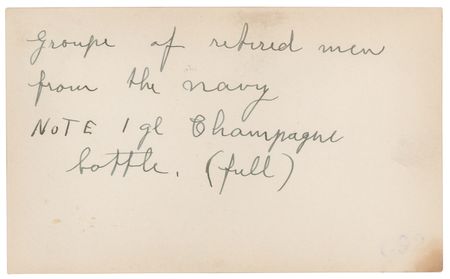 Groupe of retired men
from the navy
NOTE 1 gl Champagne
bottle. (full)